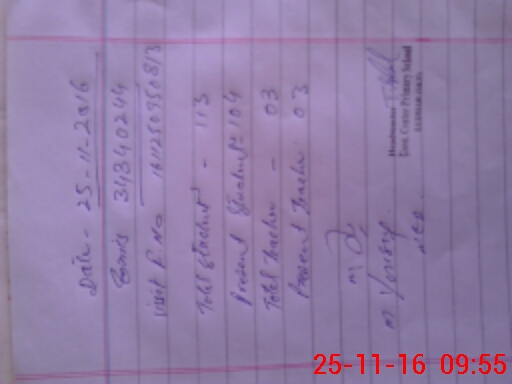 Date - 25-11-2016
Semis 34340244
Visit R.No 161125095813
Total Student - 113
Present Student 104
Total Teacher - 03
Present Teacher 03
Headmaster
Govt. Primary School
25-11-16 09:55